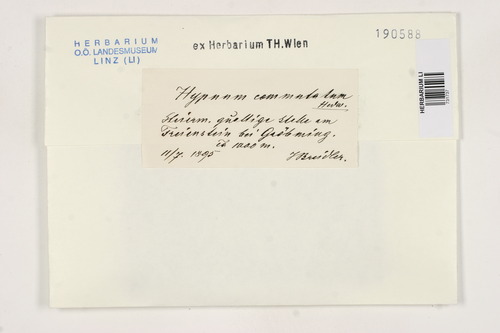 HERBARIUM
O.Ö. LANDESMUSEUM
LINZ (LI)
ex Herbarium TH.Wien
190588
HERBARIUM LI
Hypnum commutatum
Hedw.
Steierm. quellige Stelle am
Freienstein bei Gröbming.
1200 m.
11/7. 1895 J Breidler.